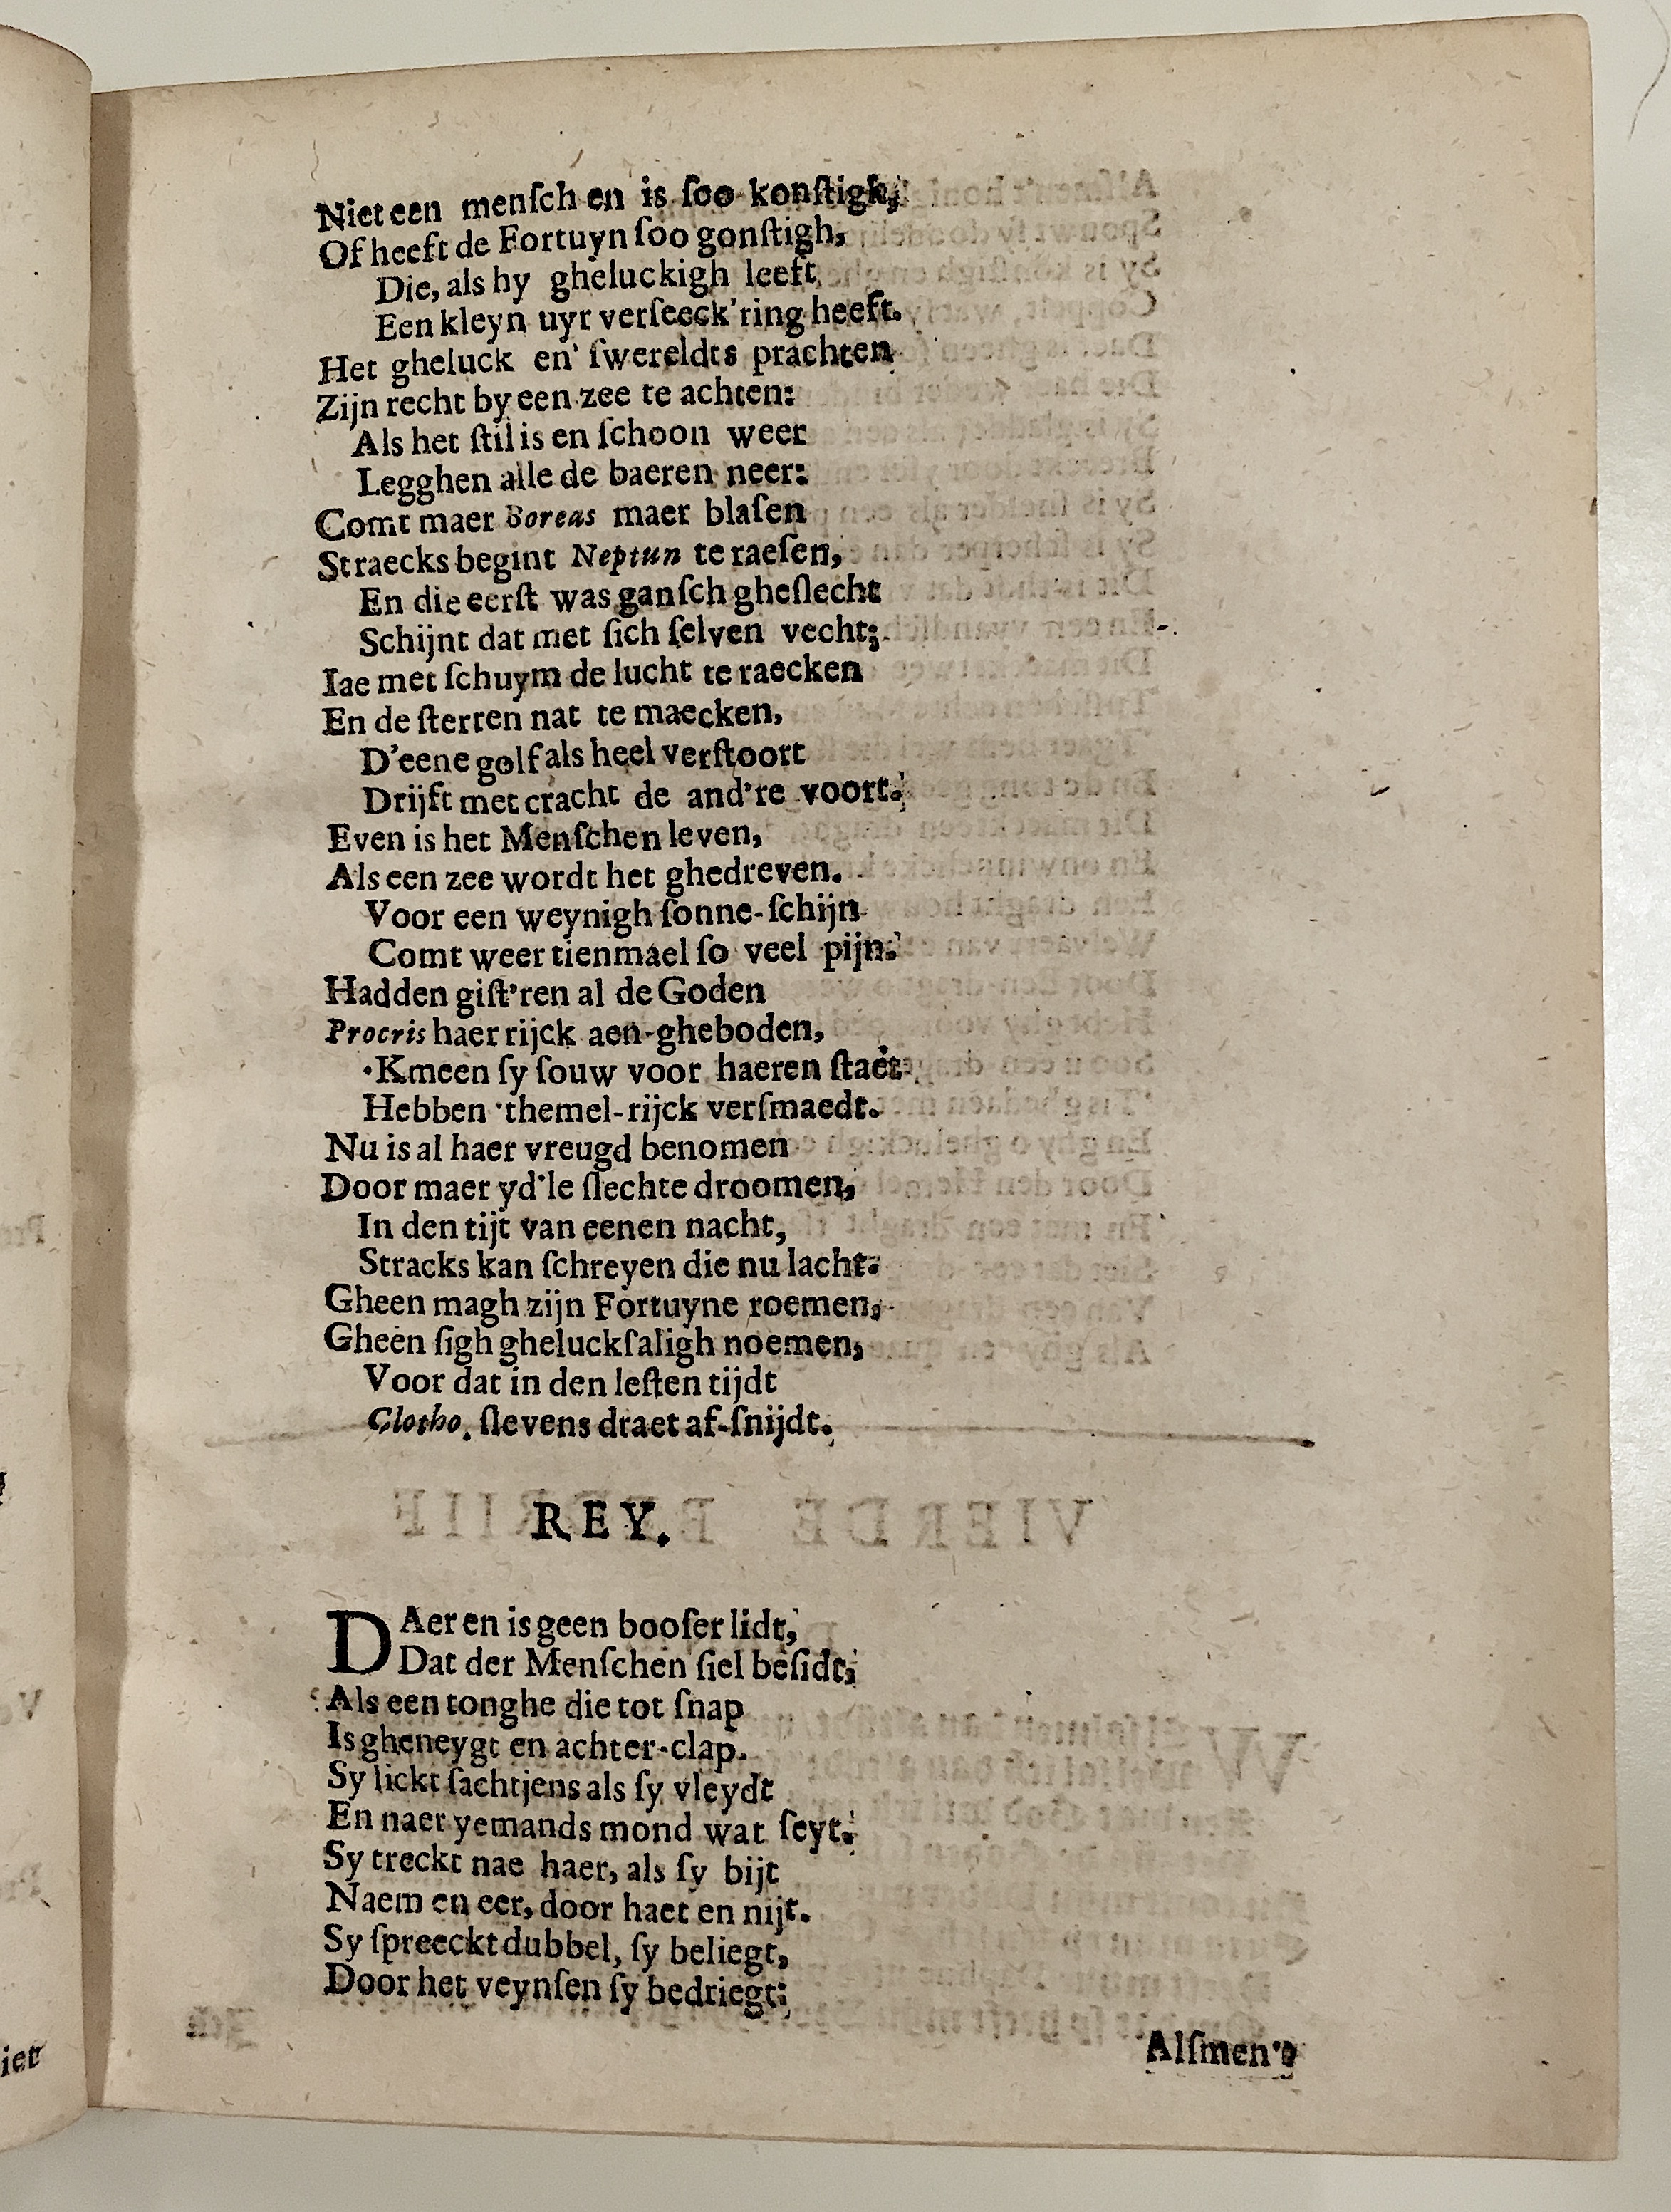 Niet een menſch en is ſoo konſtigh,
Of heeft de Fortuyn ſoo gonſtigh,
Die, als hy gheluckigh leeft
Een kleyn uyr verſeeck'ring heeft.
Het gheluck en' ſwereldts prachten
Zijn recht by een zee te achten:
Als het ſtil is en ſchoon weer
Legghen alle de baeren neer:
Comt maer Boreas maer blaſen
Straecks begint Neptun te raeſen,
En die eerſt was ganſch gheſlecht
Schijnt dat met ſich ſelven vecht;
Iae met ſchuym de lucht te raecken
En de ſterren nat te maecken,
D'eene golf als heel verſtoort
Drijft met cracht de and're voort.
Even is het Menſchen leven,
Als een zee wordt het ghedreven.
Voor een weynigh ſonne-ſchijn
Comt weer tienmael ſo veel pijn.
Hadden giſt'ren al de Goden
Procris haer rijck aen-gheboden,
'Kmeen ſy ſouw voor haeren ſtaet
Hebben 'themel-rijck verſmaedt.
Nu is al haer vreugd benomen
Door maer yd'le ſlechte droomen,
In den tijt van eenen nacht,
Stracks kan ſchreyen die nu lacht.
Gheen magh zijn Fortuyne roemen,
Gheen ſigh gheluckſaligh noemen,
Voor dat in den leſten tijdt
Clotho, ſlevens draet af-ſnijdt.
REY.
DAer en is geen booſer lidt,
Dat der Menſchen ſiel beſidt,
Als een tonghe die tot ſnap
Is gheneygt en achter-clap.
Sy lickt ſachtjens als ſy vleydt
En naer yemands mond wat ſeyt.
Sy treckt nae haer, als ſy bijt
Naem en eer, door haet en nijt.
Sy ſpreeckt dubbel, ſy beliegt,
Door het veynſen ſy bedriegt;
Alſmen't